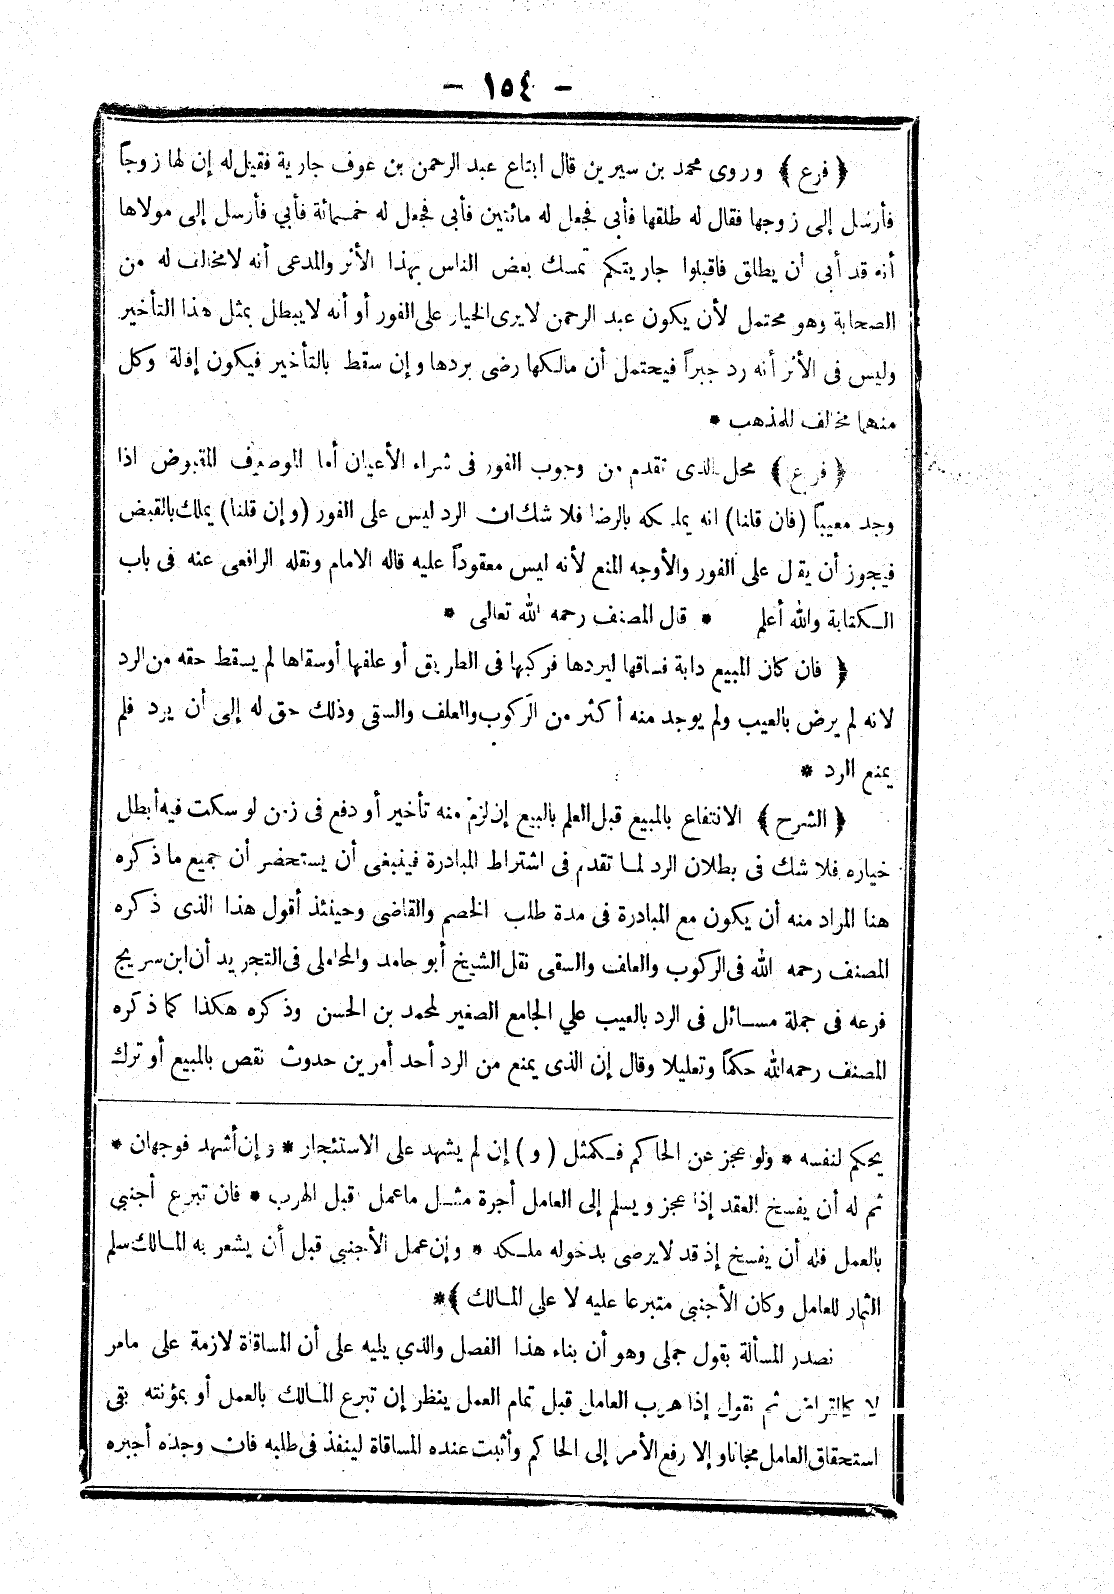 - ١٥٤ -
﴿ فرع ﴾ وروى محمد بن سيرين قال ابتاع عبد الرحمن بن عوف جارية فقيل له إن لها زوجاً
فأرسل إلى زوجها فقال له طلقها فأبى فجعل له مائتين فأبى فجعل له خمسمائة فأبي فأرسل إلى مولاها
أنه قد أبى أن يطلق فاقبلوا جاريتكم تمسك بعض الناس بهذا الأثر والمدعى أنه لامخالف له من
الصحابة وهو محتمل لأن يكون عبد الرحمن لايرى الخيار على الفور أو أنه لايبطل بمثل هذا التأخير
وليس فى الأثر أنه رد جبراً فيحتمل أن مالكها رضى بردها وإن سقط بالتأخير فيكون إقالة وكل
منهما مخالف للمذهب *
﴿ فرع ﴾ محل الذى تقدم من وجوب الفور فى شراء الأعيان أما الموصوف المقبوض اذا
وجد معيباً (فان قلنا) انه يملكه بالرضا فلا شك ان الرد ليس على الفور (وإن قلنا) يملك بالقبض
فيجوز أن يقال على الفور والأوجه المنع لأنه ليس معقوداً عليه قاله الامام ونقله الرافعى عنه فى باب
الكتابة والله أعلم * قال المصنف رحمه الله تعالى *
﴿ فان كان المبيع دابة فساقها ليردها فركبها فى الطريق أو علفها أوسقاها لم يسقط حقه من الرد
لانه لم يرض بالعيب ولم يوجد منه أكثر من الركوب والعلف والسقى وذلك حق له إلى أن يرد فلم
يمنع الرد *
﴿ الشرح ﴾ الانتفاع بالمبيع قبل العلم بالبيع إن لزم منه تأخير أو دفع فى زمن لو سكت فيه أبطل
خياره فلا شك فى بطلان الرد لما تقدم فى اشتراط المبادرة فينبغى أن يستحضر أن جميع ماذكره
هنا المراد منه أن يكون مع المبادرة فى مدة طلب الخصم والقاضى وحينئذ أقول هذا الذى ذكره
المصنف رحمه الله فى الركوب والعلف والسقى نقل الشيخ أبو حامد والمحاملى فى التجريد أن ابن سريج
فرعه فى جملة مسائل فى الرد بالعيب علي الجامع الصغير لمحمد بن الحسن وذكره هكذا كما ذكره
المصنف رحمه الله حكماً وتعليلا وقال إن الذى يمنع من الرد أحد أمرين حدوث نقص بالمبيع أو ترك
يحكم لنفسه * ولو عجز عن الحاكم فكمثل ( و ) إن لم يشهد على الاستئجار * وإن أشهد فوجهان *
ثم له أن يفسخ العقد إذا عجز ويسلم إلى العامل أجرة مثل ماعمل قبل الهرب * فان تبرع أجنبي
بالعمل فله أن يفسخ إذ قد لايرضى بدخوله ملكه * وإن عمل الأجنبى قبل أن يشعر به المالك سلم
الثمار للعامل وكان الأجنبى متبرعا عليه لا على المالك ﴾*
نصدر المسألة بقول جملى وهو أن بناء هذا الفصل والذي يليه على أن المساقاة لازمة على مامر
لا كالقراض ثم نقول إذا هرب العامل قبل تمام العمل ينظر إن تبرع المالك بالعمل أو بمؤنته بقى
استحقاق العامل مجانا وإلا رفع الأمر إلى الحاكم وأثبت عنده المساقاة لينفذ فى طلبه فان وجده أجبره